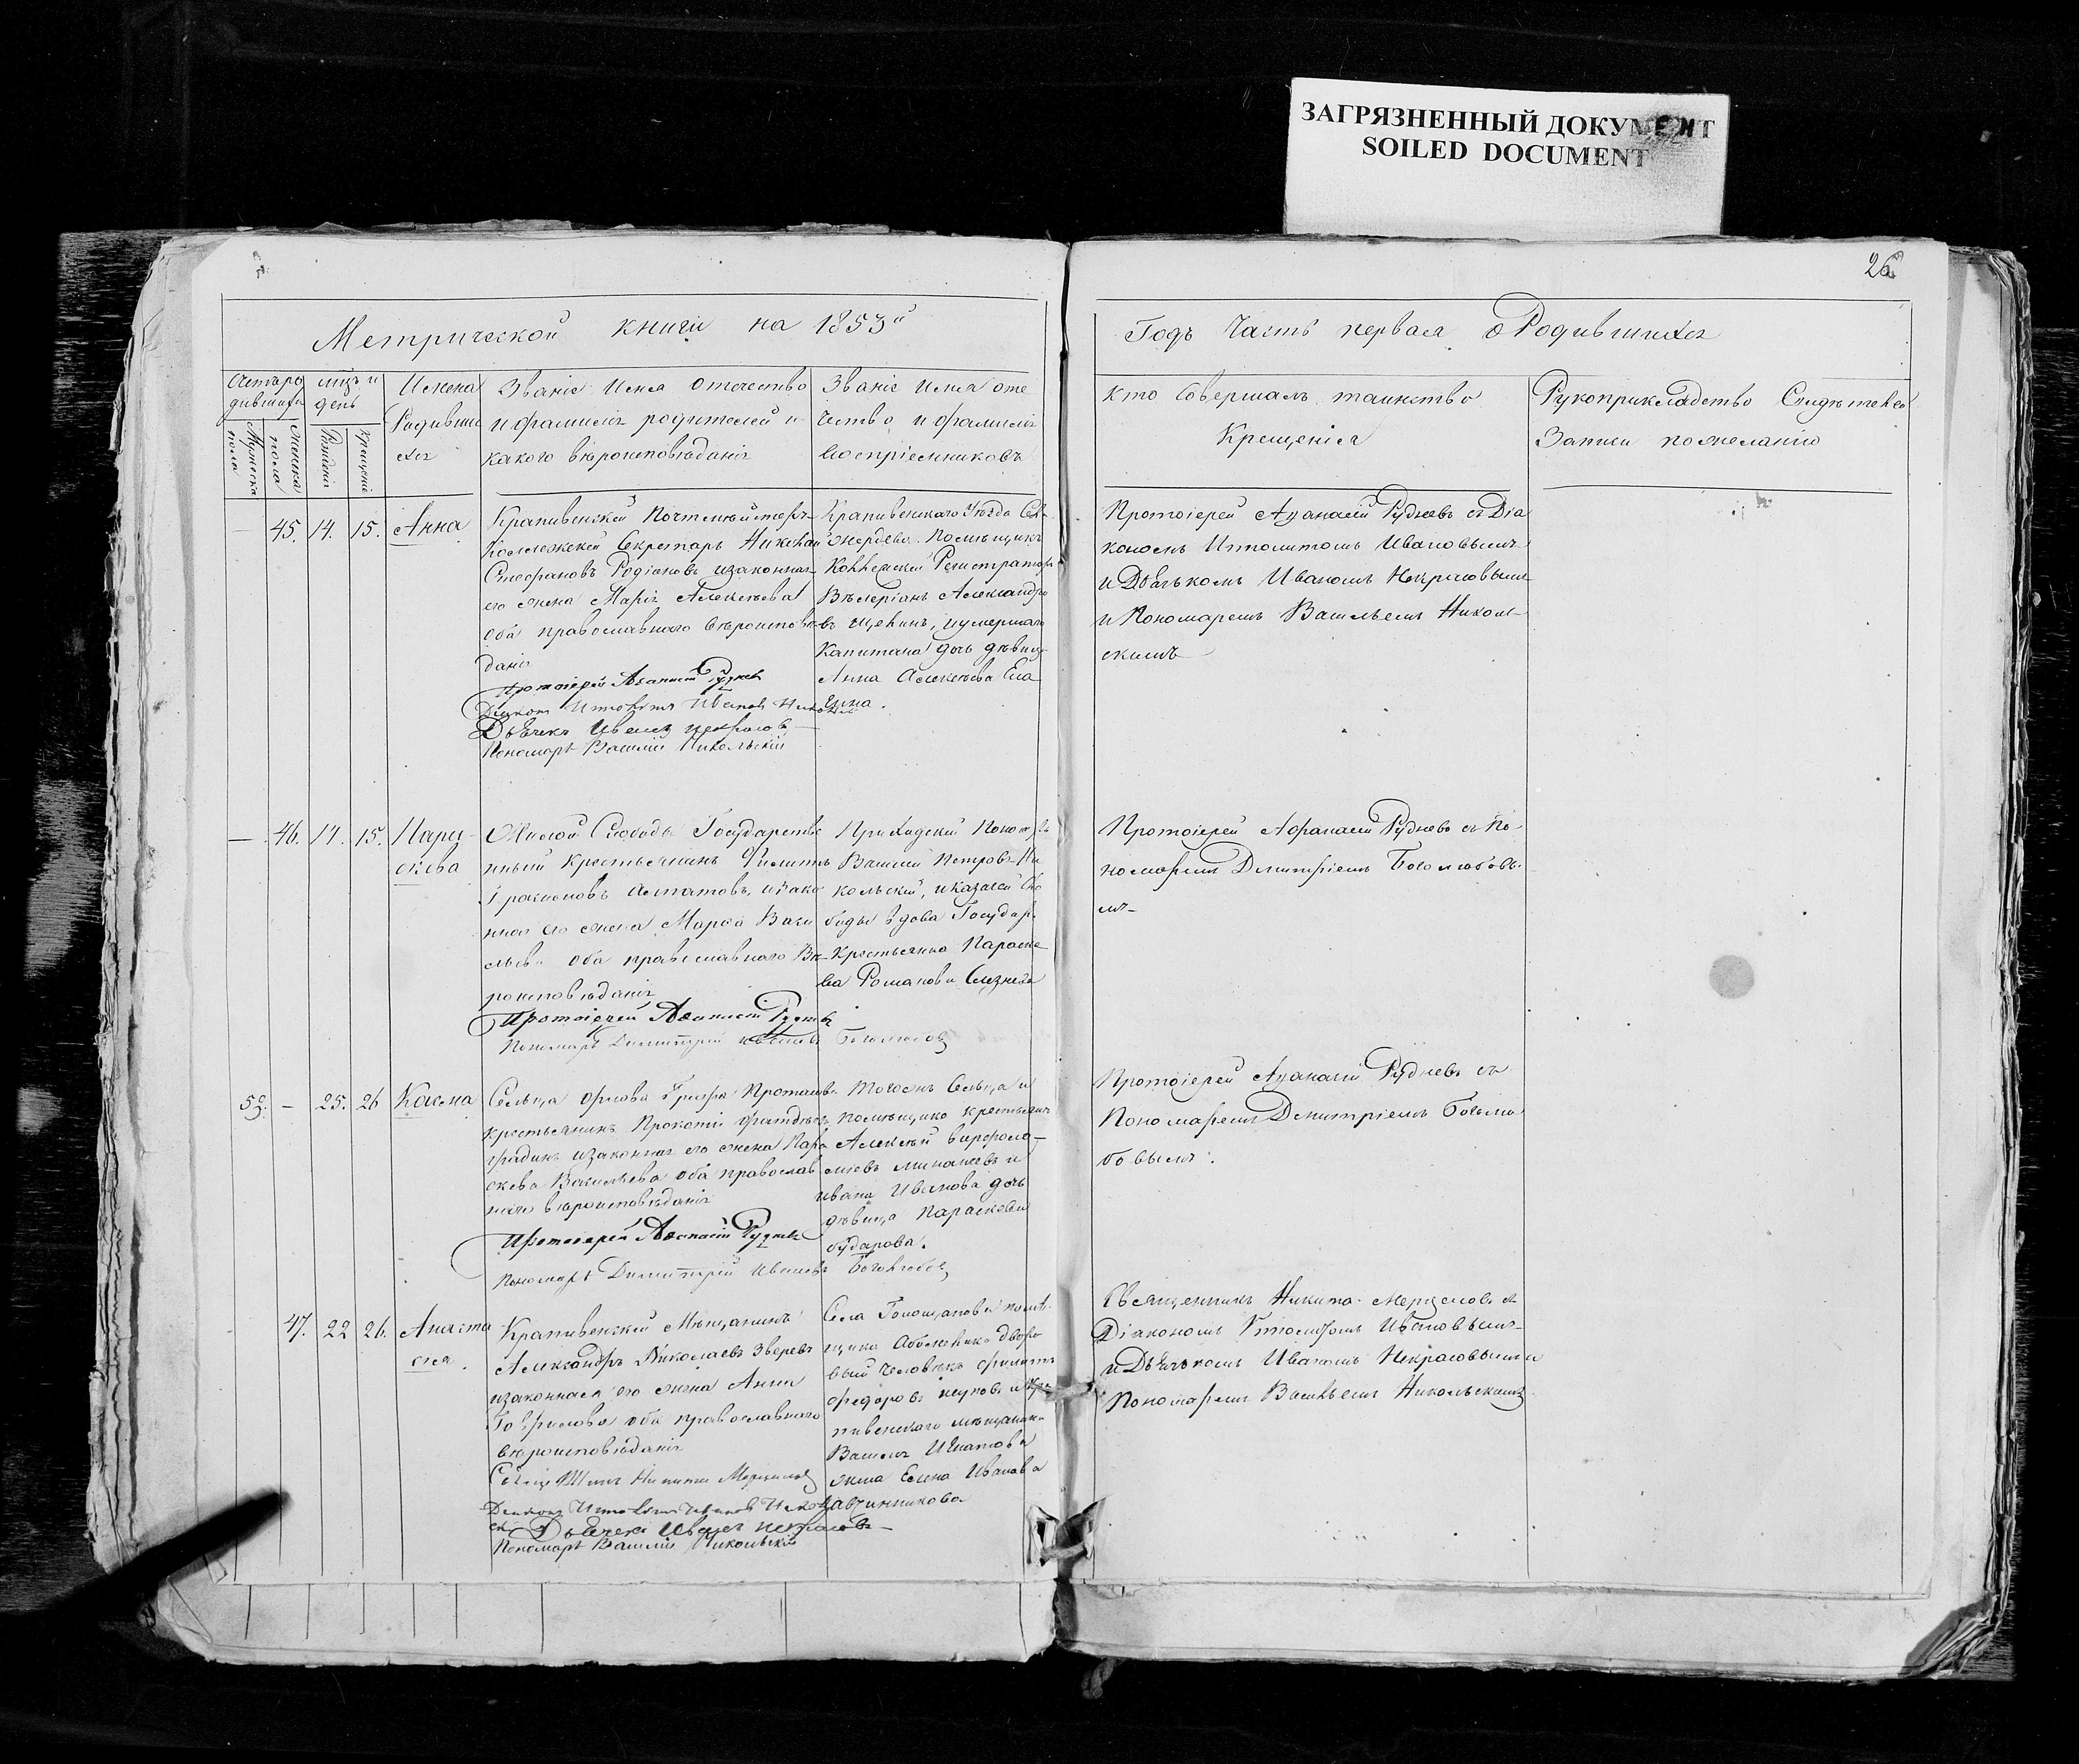 ЗАГРЯЗНЕННЫЙ ДОКУМЕНТ
SOILED DOCUMENT
26
Метрической книги на 1853й
Годъ Часть первая о Родившихся
Счетъ ро
дившихся
Мужеска
пола
Женска
пола
мцъ и
день
Рожденія
Крещенія
Имена
Родивши
хся
Званіе Имя отечество
и фамилія родителей и
какого вѣроисповѣданія
Званіе имя оте
чество и фамилія
воспріемниковъ
Кто Совершалъ таинство
Крещенія
Рукоприкладство Свидѣтелей
Записи по желанію
45. 14. 15. Анна
Крапивенской Почтмейстеръ
Коллежской Секретарь Николай
Стефановъ Родіоновъ и законная
его жена Марія Алексѣева
оба православнаго вѣроисповѣ
данія
Протоіерей Аѳанасій Рудневъ
Діаконъ Ипполитъ Ивановъ
Дьячекъ Иванъ Некрасовъ
Пономарь Василій Никольскій
Крапивенскаго Уѣзда
Помѣщикъ
Коллежской Регистраторъ
Валеріанъ Александро
въ и умершаго
Капитана дочь дѣвица
Анна Алексѣева
Протоіерей Аѳанасій Рудневъ съ Діа
кономъ Ипполитомъ Ивановымъ
и Дьячкомъ Иваномъ Некрасовымъ
и Пономаремъ Васильемъ Николь
скимъ
46. 14. 15. Пара
скева
Слободы Государстве
нный крестьянинъ Филиппъ
и зако
нная его жена Марѳа Васи
льева оба православнаго Вѣ
роисповѣданія
Протоіерей Аѳанасій Рудневъ
Пономарь Димитрій Ивановъ Боголюбовъ
Приходскій Пономарь
Василій Петровъ Ни
кольскій, и казачей Сло
боды вдова Государ.
Крестьянка Параске
ва Романова
Протоіерей Аѳанасій Рудневъ съ По
номаремъ Димитріемъ Боголюбовы
мъ
52. 25. 26 Косма
Сельца Орлова Графа
крестьянинъ Прокопій
и законная его жена Пара
скева Васильева оба православ
наго вѣроисповѣданія
Протоіерей Аѳанасій Рудневъ
Пономарь Димитрій Ивановъ Боголюбовъ
Тогожъ Сельца и
помѣщика крестьянинъ
Алексѣй Варфоло
меевъ Минаевъ и
Ивана Иванова дочь
дѣвица Параскева
Протоіерей Аѳанасій Рудневъ съ
Пономаремъ Димитріемъ Боголю
бовымъ.
47. 22 26. Анаста
сія
Крапивенской Мѣщанинъ
Александръ Николаевъ Зверевъ
и законная его жена Анна
Гаврилова оба православнаго
вѣроисповѣданія
Никита Мерцаловъ
Діаконъ Ипполитъ Ивановъ
Дьячекъ Иванъ Некрасовъ
Пономарь Василій Никольскій
Села помѣ
щика дворо
вый человѣкъ Филиппъ
Федоровъ и Кра
пивенскаго мѣщанина
Василья Игнатова
жена Елена Иванова
Священникъ Никита Мерцаловъ съ
Діакономъ Ипполитомъ Ивановымъ
и Дьячкомъ Иваномъ Некрасовымъ и
Пономаремъ Васильемъ Никольскимъ